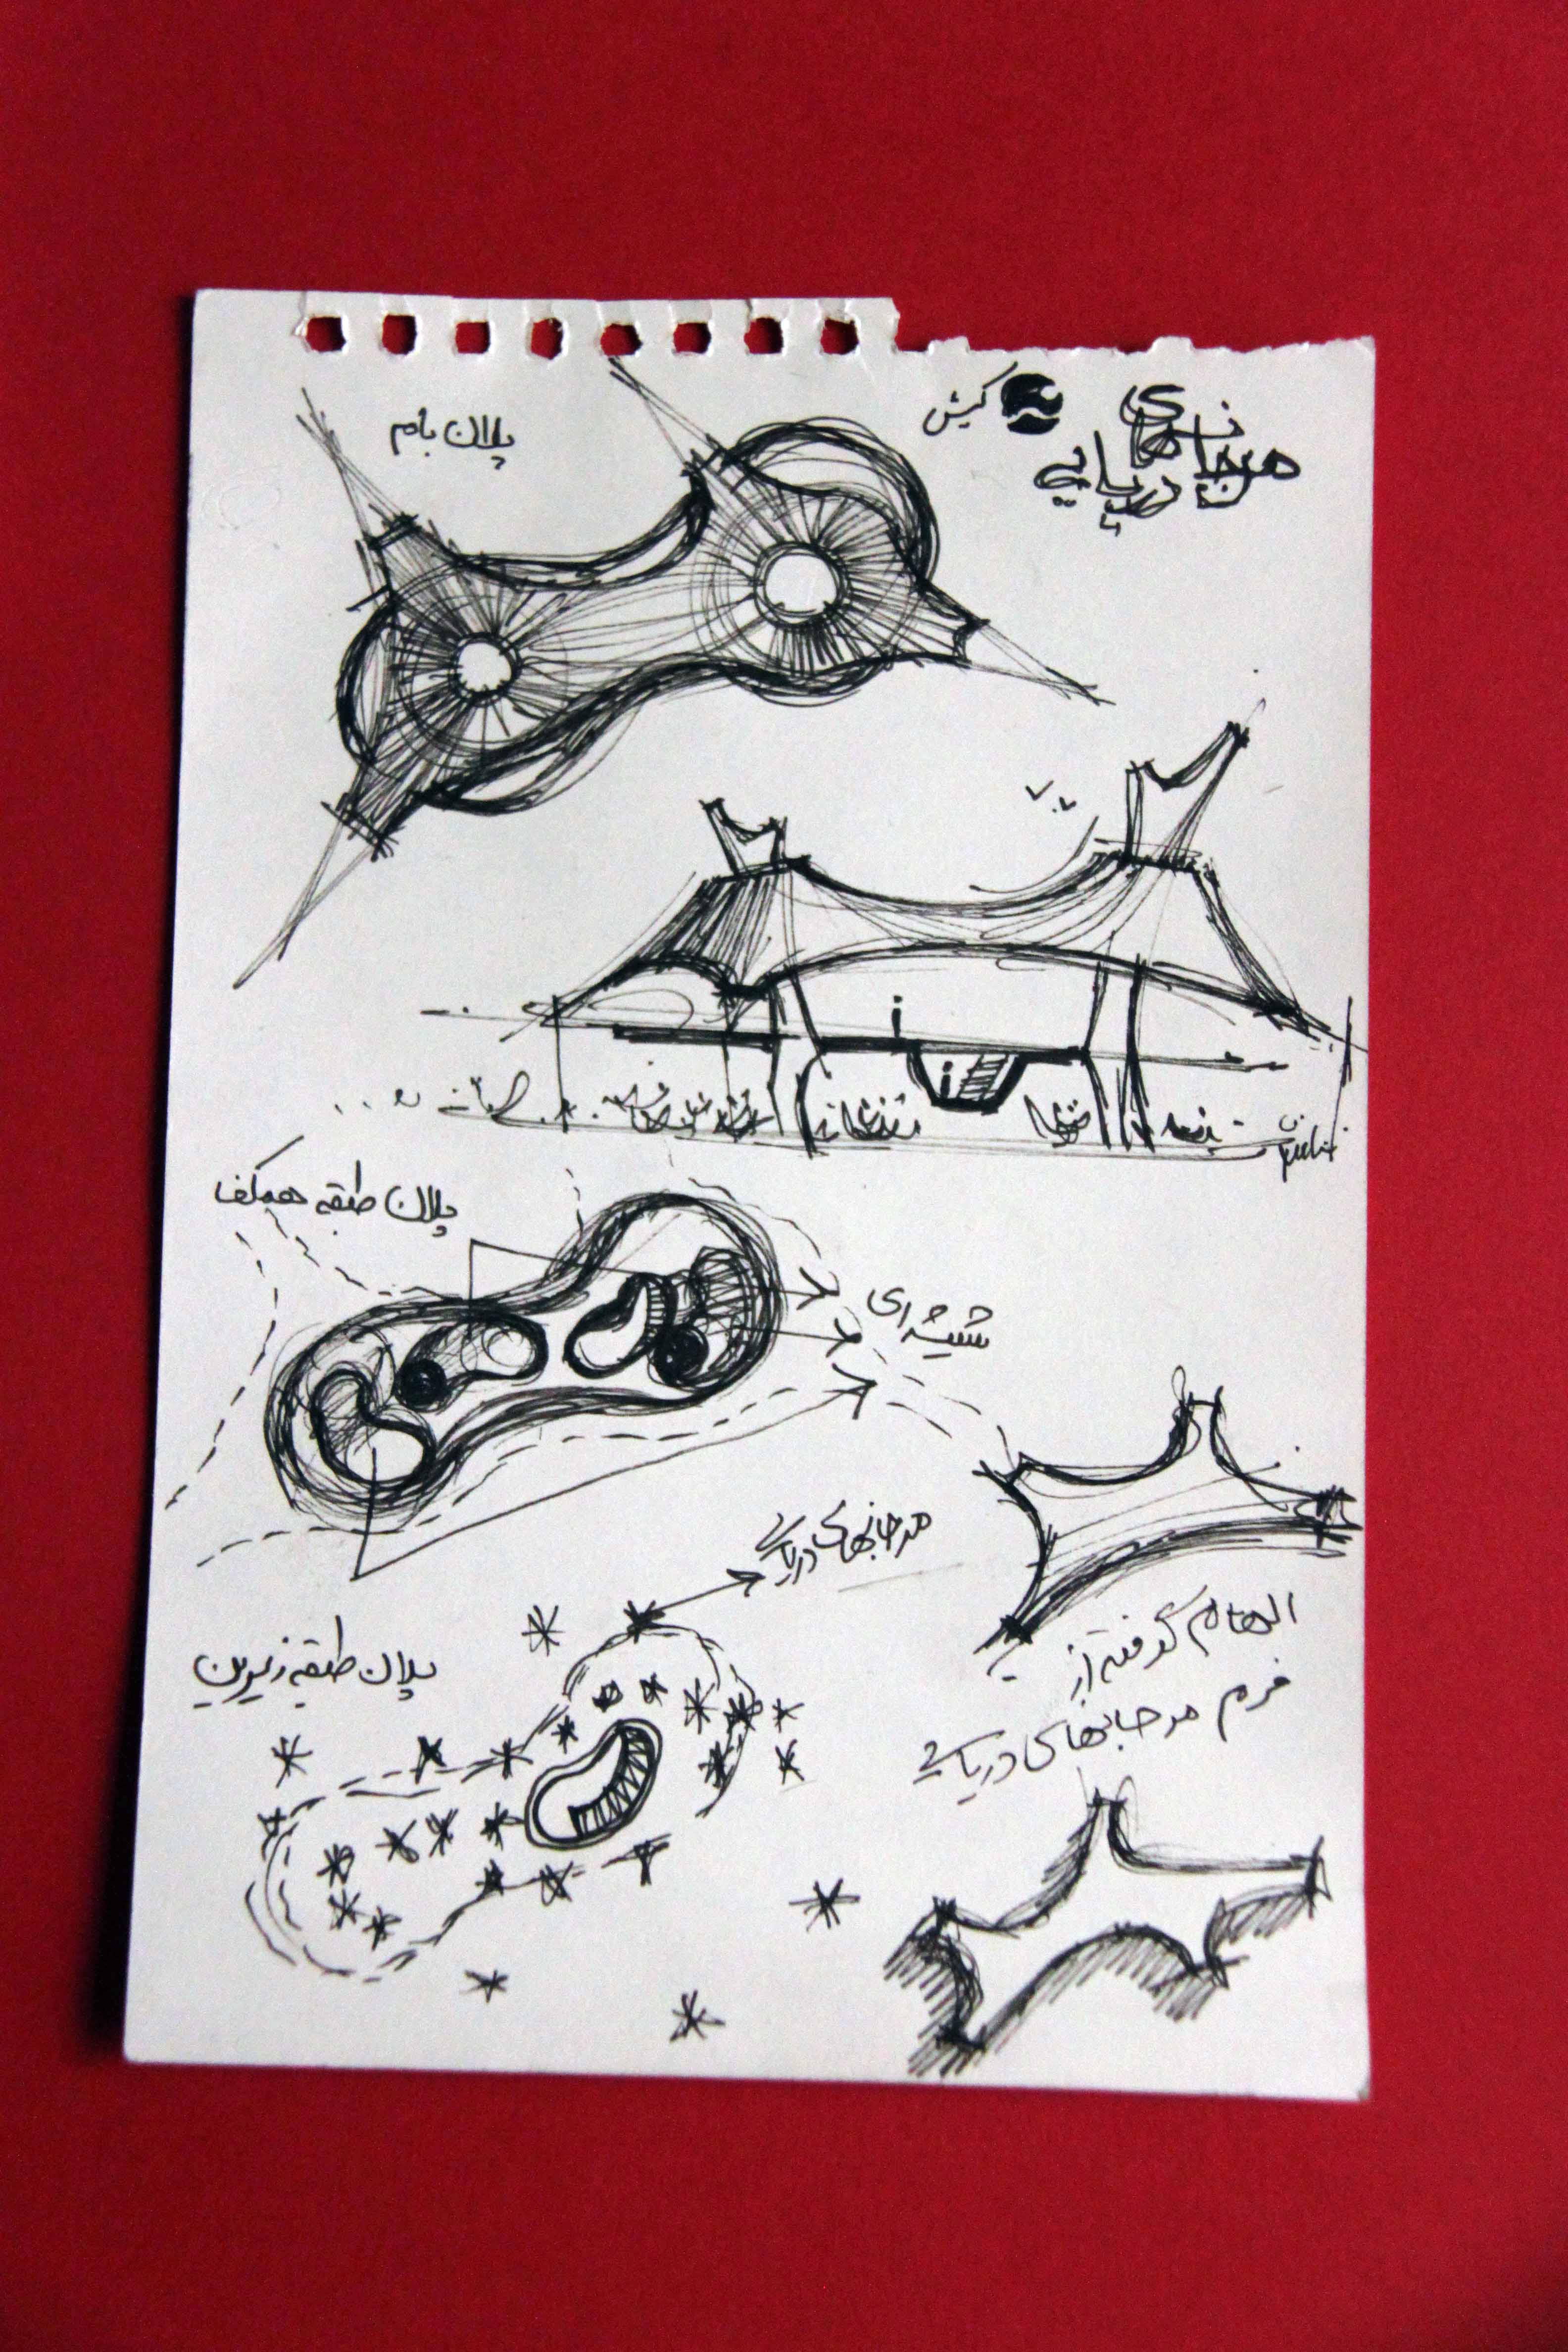 مرجانهای
دریایی
کیش
پلان بام
پلان طبقه همکف
شیشه ای
مرجانهای دریایی
پلان طبقه زیرین
الهام گرفته از
فرم مرجانهای دریایی